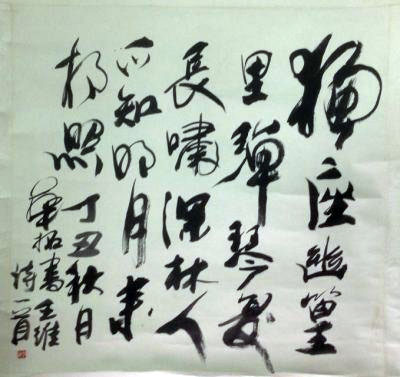 獨座幽篁
里彈琴复
長嘯深林人
不知明月来
相照丁丑秋月
書王維
诗一首